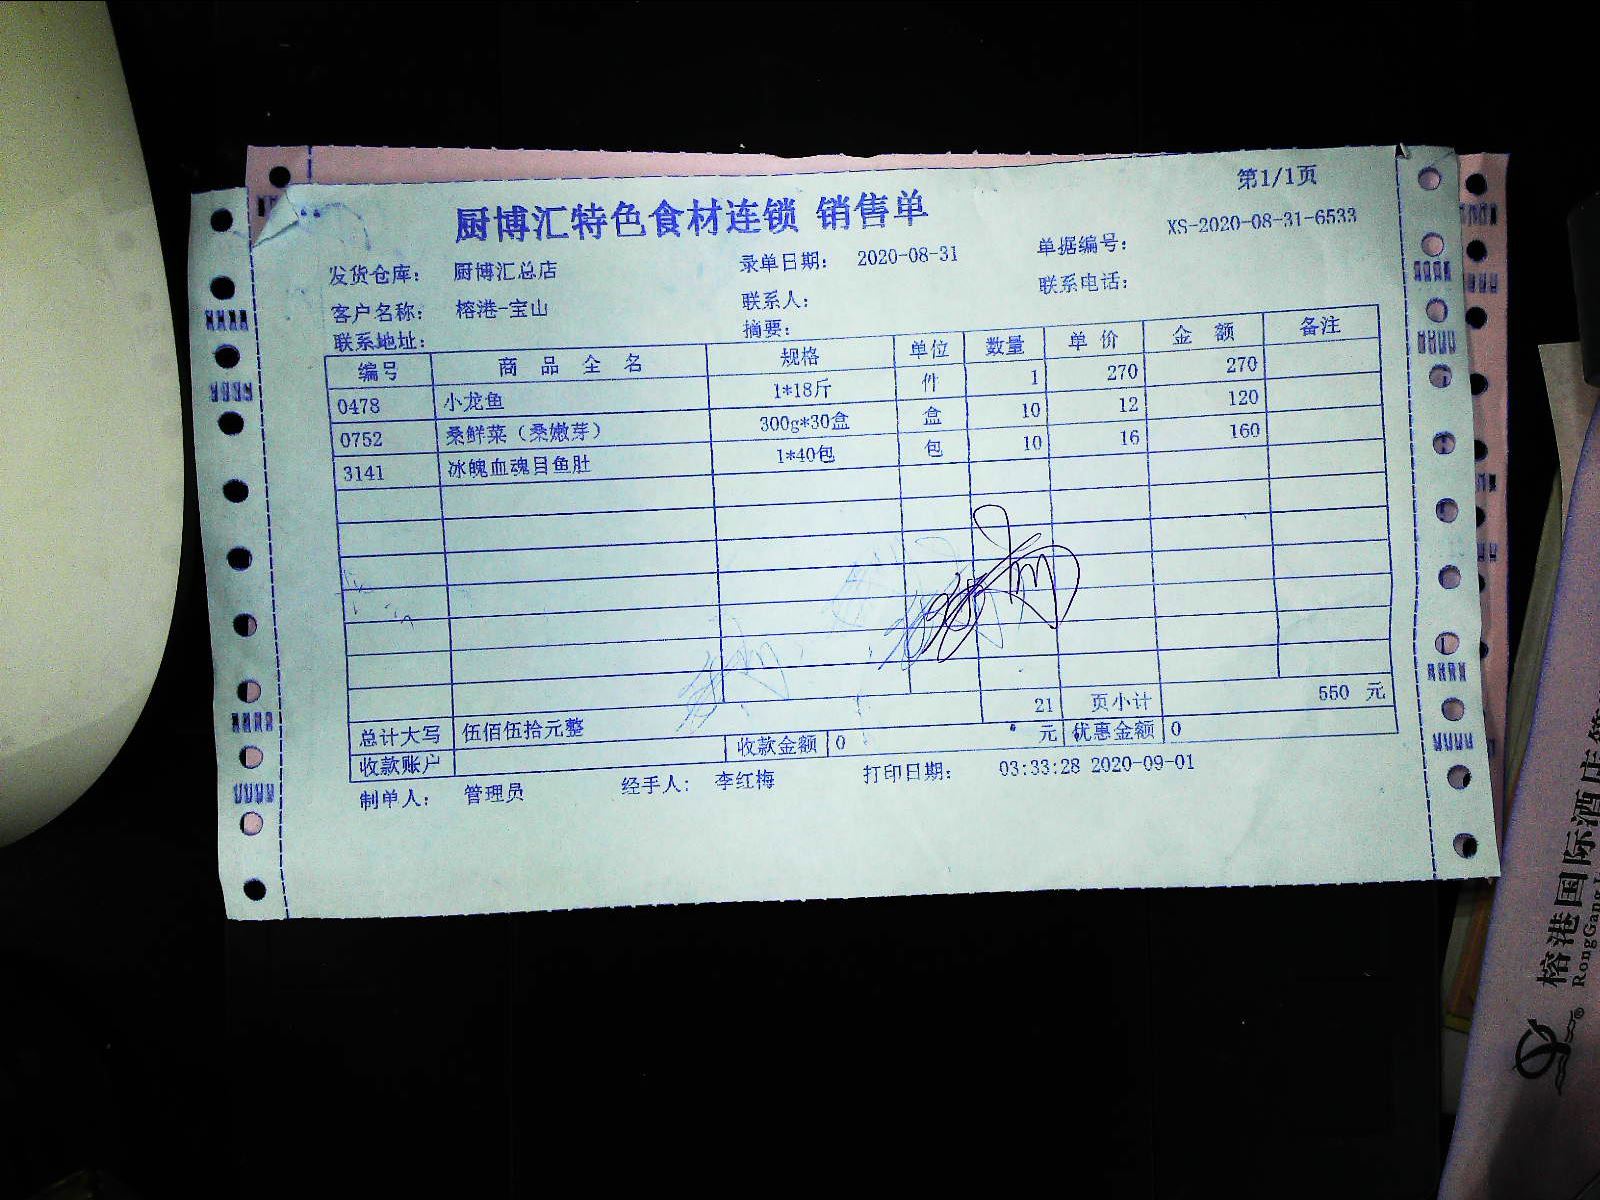 第1/1页
厨博汇特色食材连锁 销售单
发货仓库: 厨博汇总店 录单日期: 2020-08-31 单据编号: XS-2020-08-31-6533
客户名称: 榕港-宝山 联系人: 联系电话:
联系地址: 摘要:
编号 商 品 全 名 规格 单位 数量 单 价 金 额 备注
0478 小龙鱼 1*18斤 件 1 270 270
0752 桑鲜菜(桑嫩芽) 300g*30盒 盒 10 12 120
3141 冰魄血魂目鱼肚 1*40包 包 10 16 160
21 页小计 550 元
总计大写 伍佰伍拾元整 元 优惠金额 0
收款账户 收款金额 0
制单人: 管理员 经手人: 李红梅 打印日期: 03:33:28 2020-09-01
榕港国际酒店
RongGang